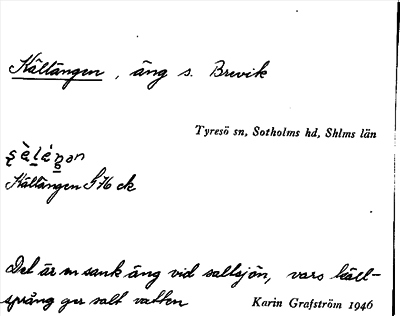 Kältängen, äng s. Brevik
Tyresö sn, Sotholms hd, Shlms län
Kältängen S 76 ck
Det är en sank äng vid saltsjön, vars käll-
språng ger salt vatten
Karin Grafström 1946